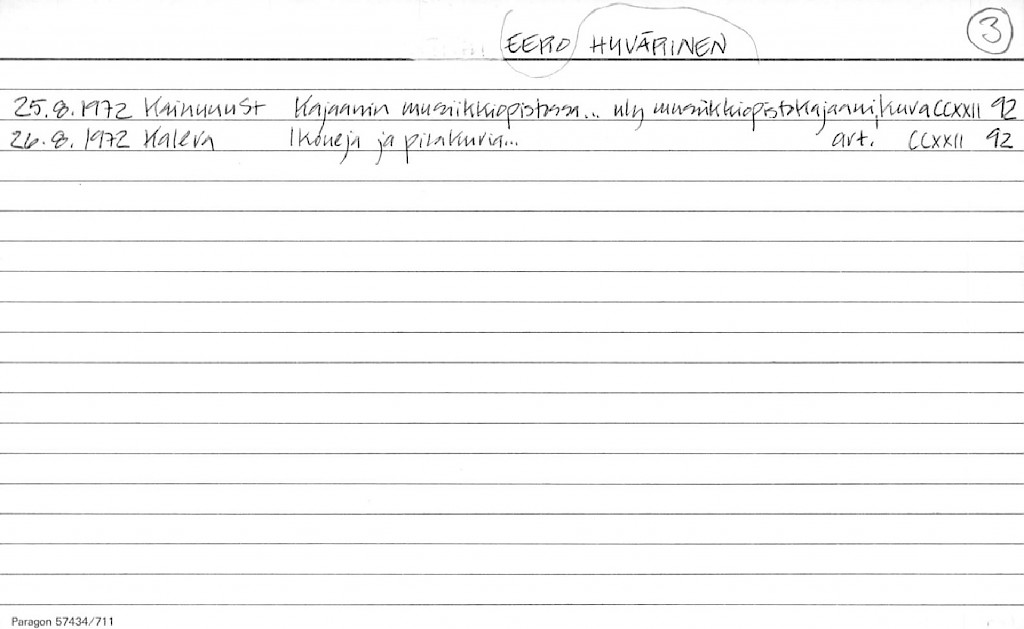 EERO HYVÄRINEN 3
25.8.1972 KainuunSt Kajaanin musiikkiopistossa... uly musiikkiopisto Kajaani, kuva CCXXII 92
26.8.1972 Kaleva Ikoneja ja pilakuvia... art. CCXXII 92
Paragon 57434/711